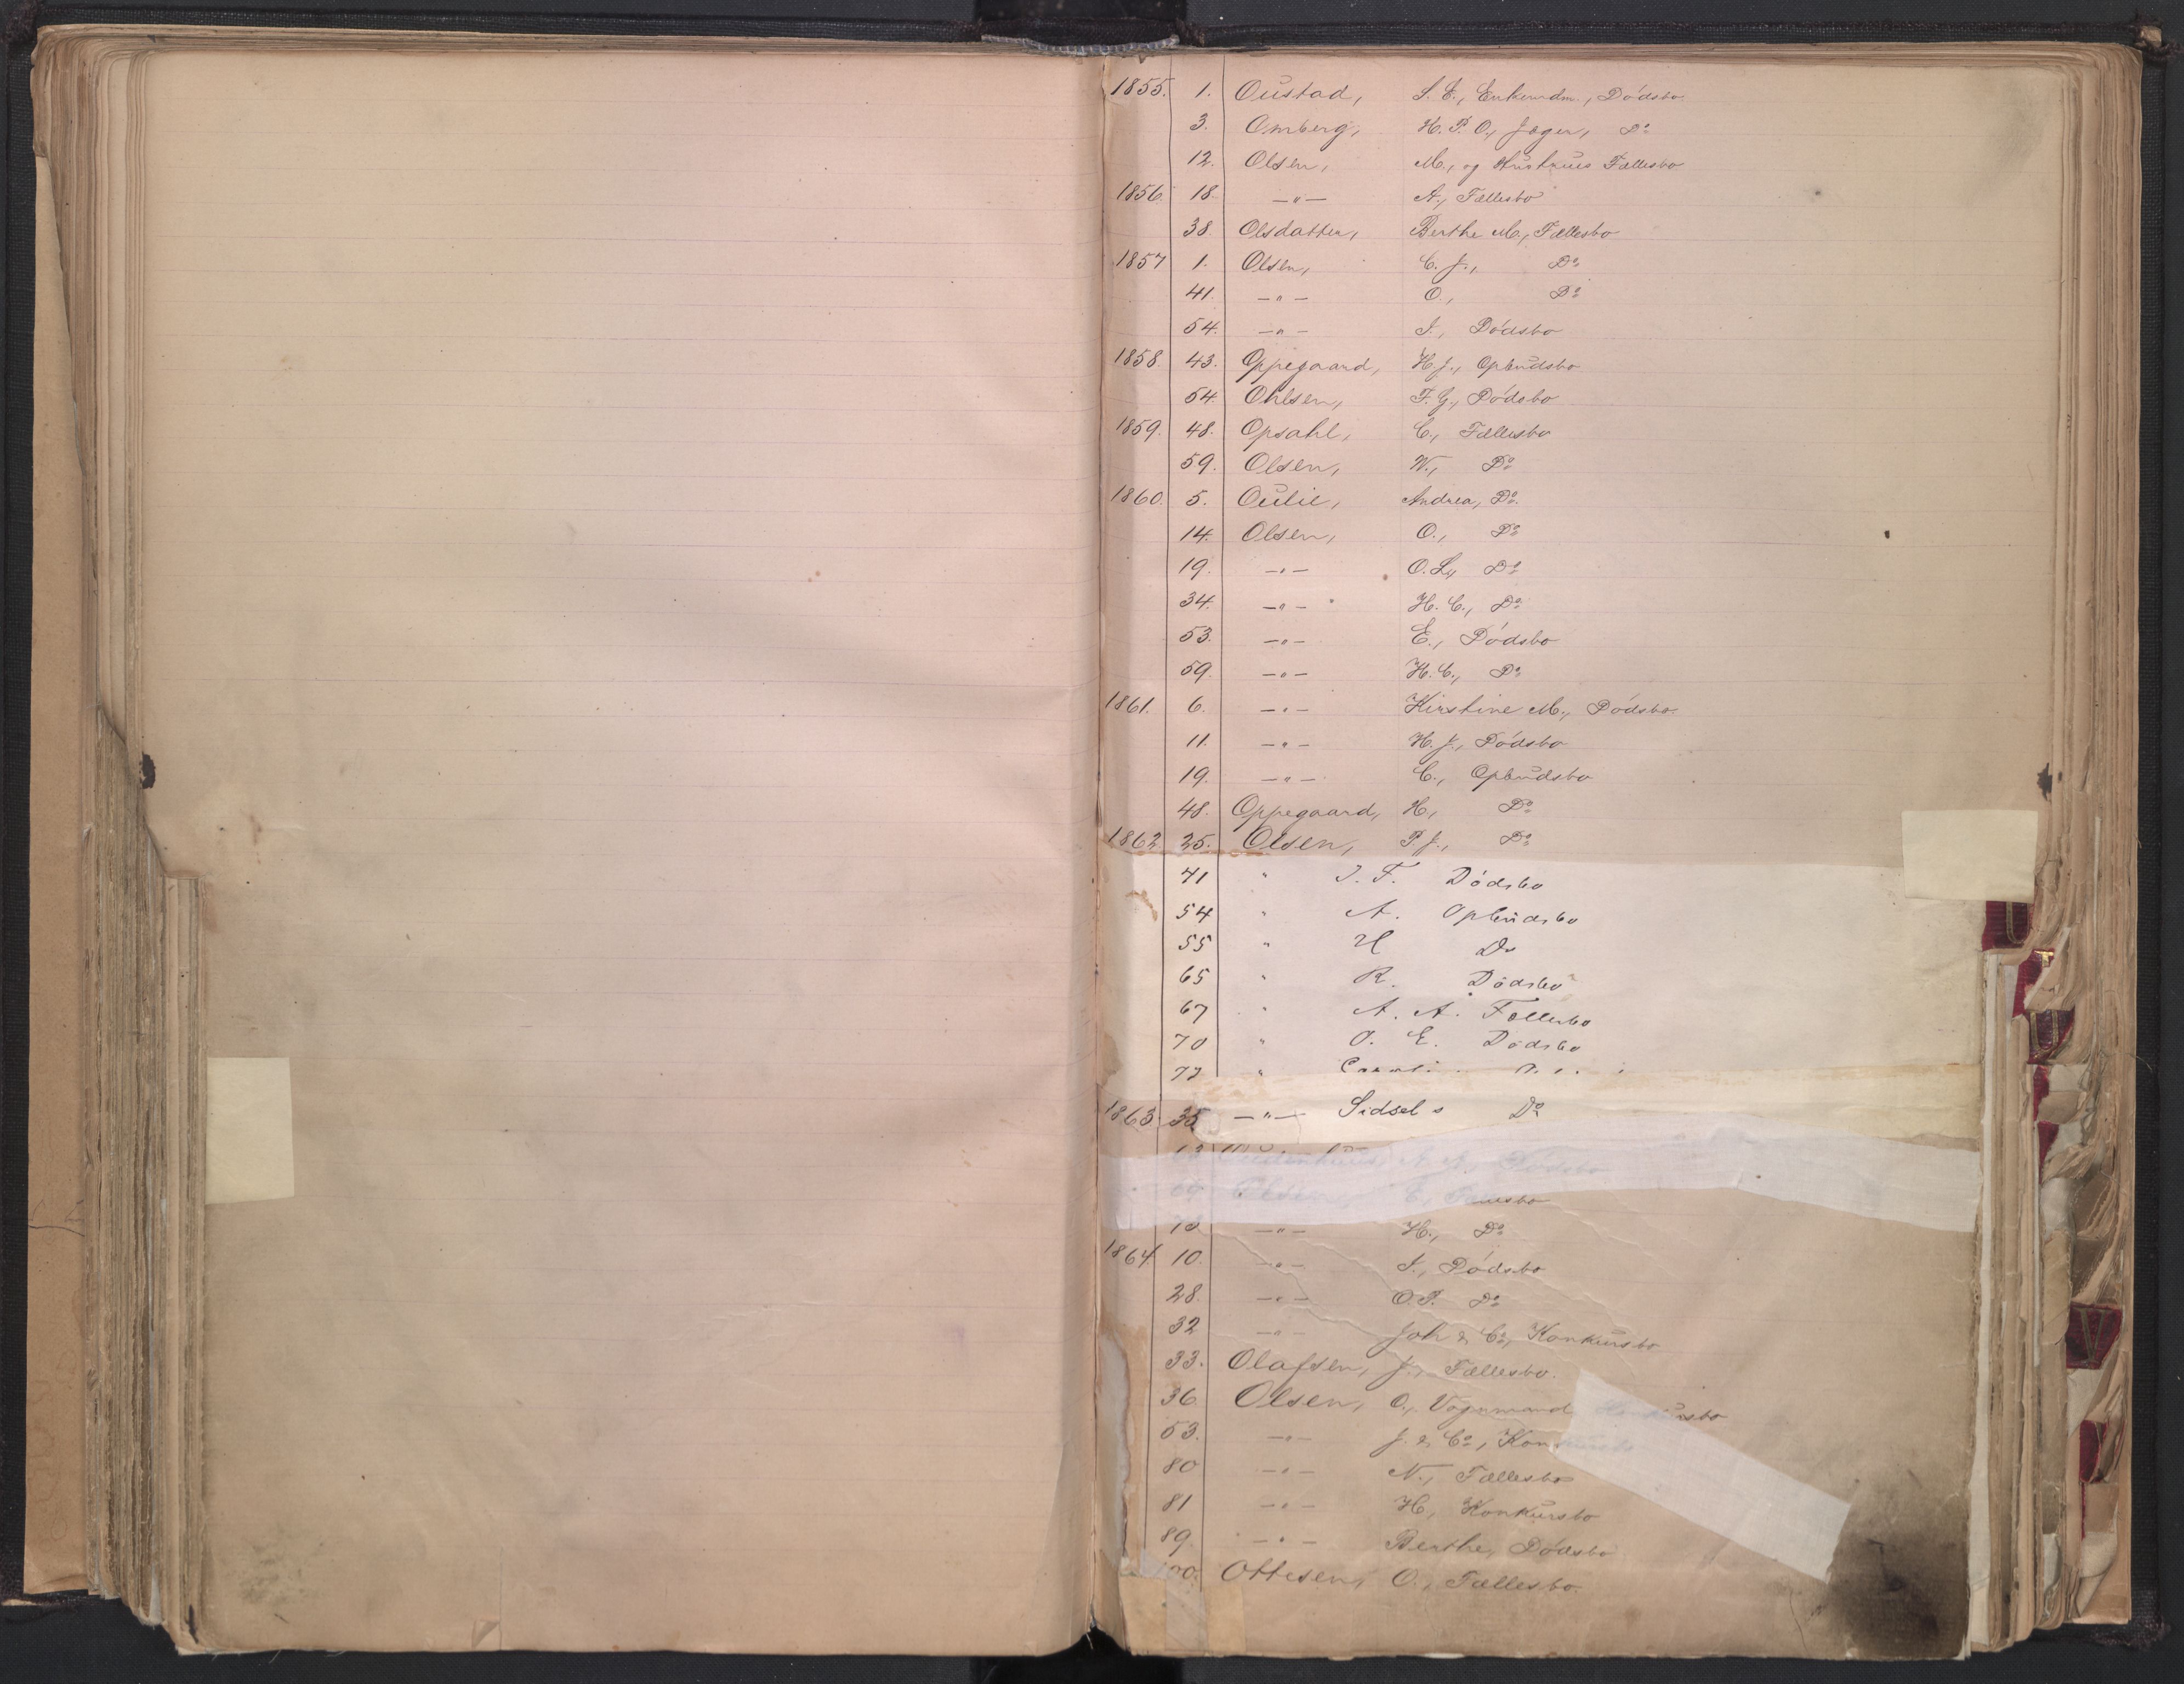 1855. 1. Oustad, S. E., Enkemdm., Dødsbo
3. Omberg, H. P. O., Jæger, Do
12. Olsen, M., og Hustrues Fællesbo
1856. 18. —"— A., Fællesbo
38. Olsdatter, Berthe M., Fællesbo
1857 1. Olsen, C. J., Do
41. —"— O., Do
54. —"— I., Dødsbo
1858. 43. Oppegaard, H. J., Opbudsbo
54. Ohlsen, F. G., Dødsbo
1859. 48. Opsahl, C., Fællesbo
59. Olsen, W., Do
1860. 5. Oulie, Andrea, Do.
14. Olsen, O., Do
19. —"— O. L., Do
34. —"— H. C., Do
53. —"— E., Dødsbo
59. —"— H. C., Do
1861. 6. —"— Kirstine M., Dødsbo.
11. —"— H. J., Dødsbo
19. —"— C., Opbudsbo
48. Oppegaard, H., Do
1862. 25. Olsen, P. J., Do
41 " J. F. Dødsbo
54 " A. Opbudsbo
55 " H Do
65 " R. Dødsbo
67 " A. A. Fællesbo
70 " O. E. Dødsbo
77 "
1863. 35 —"— Sidsel Do
A. A., Dødsbo
Olsen, E., Fællesbo
—"— H., Do
1864. 10. —"— I., Dødsbo
28. —"— O. P. Do
32 —"— Joh & Co, Konkursbo
33. Olafsen, J., Fællesbo.
36. Olsen, O., Vognmand, Konkursbo
53. —"— J. & Co, Konkursbo
80 —"— N., Fællesbo
81 —"— H., Konkursbo
89. —"— Berthe, Dødsbo
100. Ottesen, O., Fællesbo.